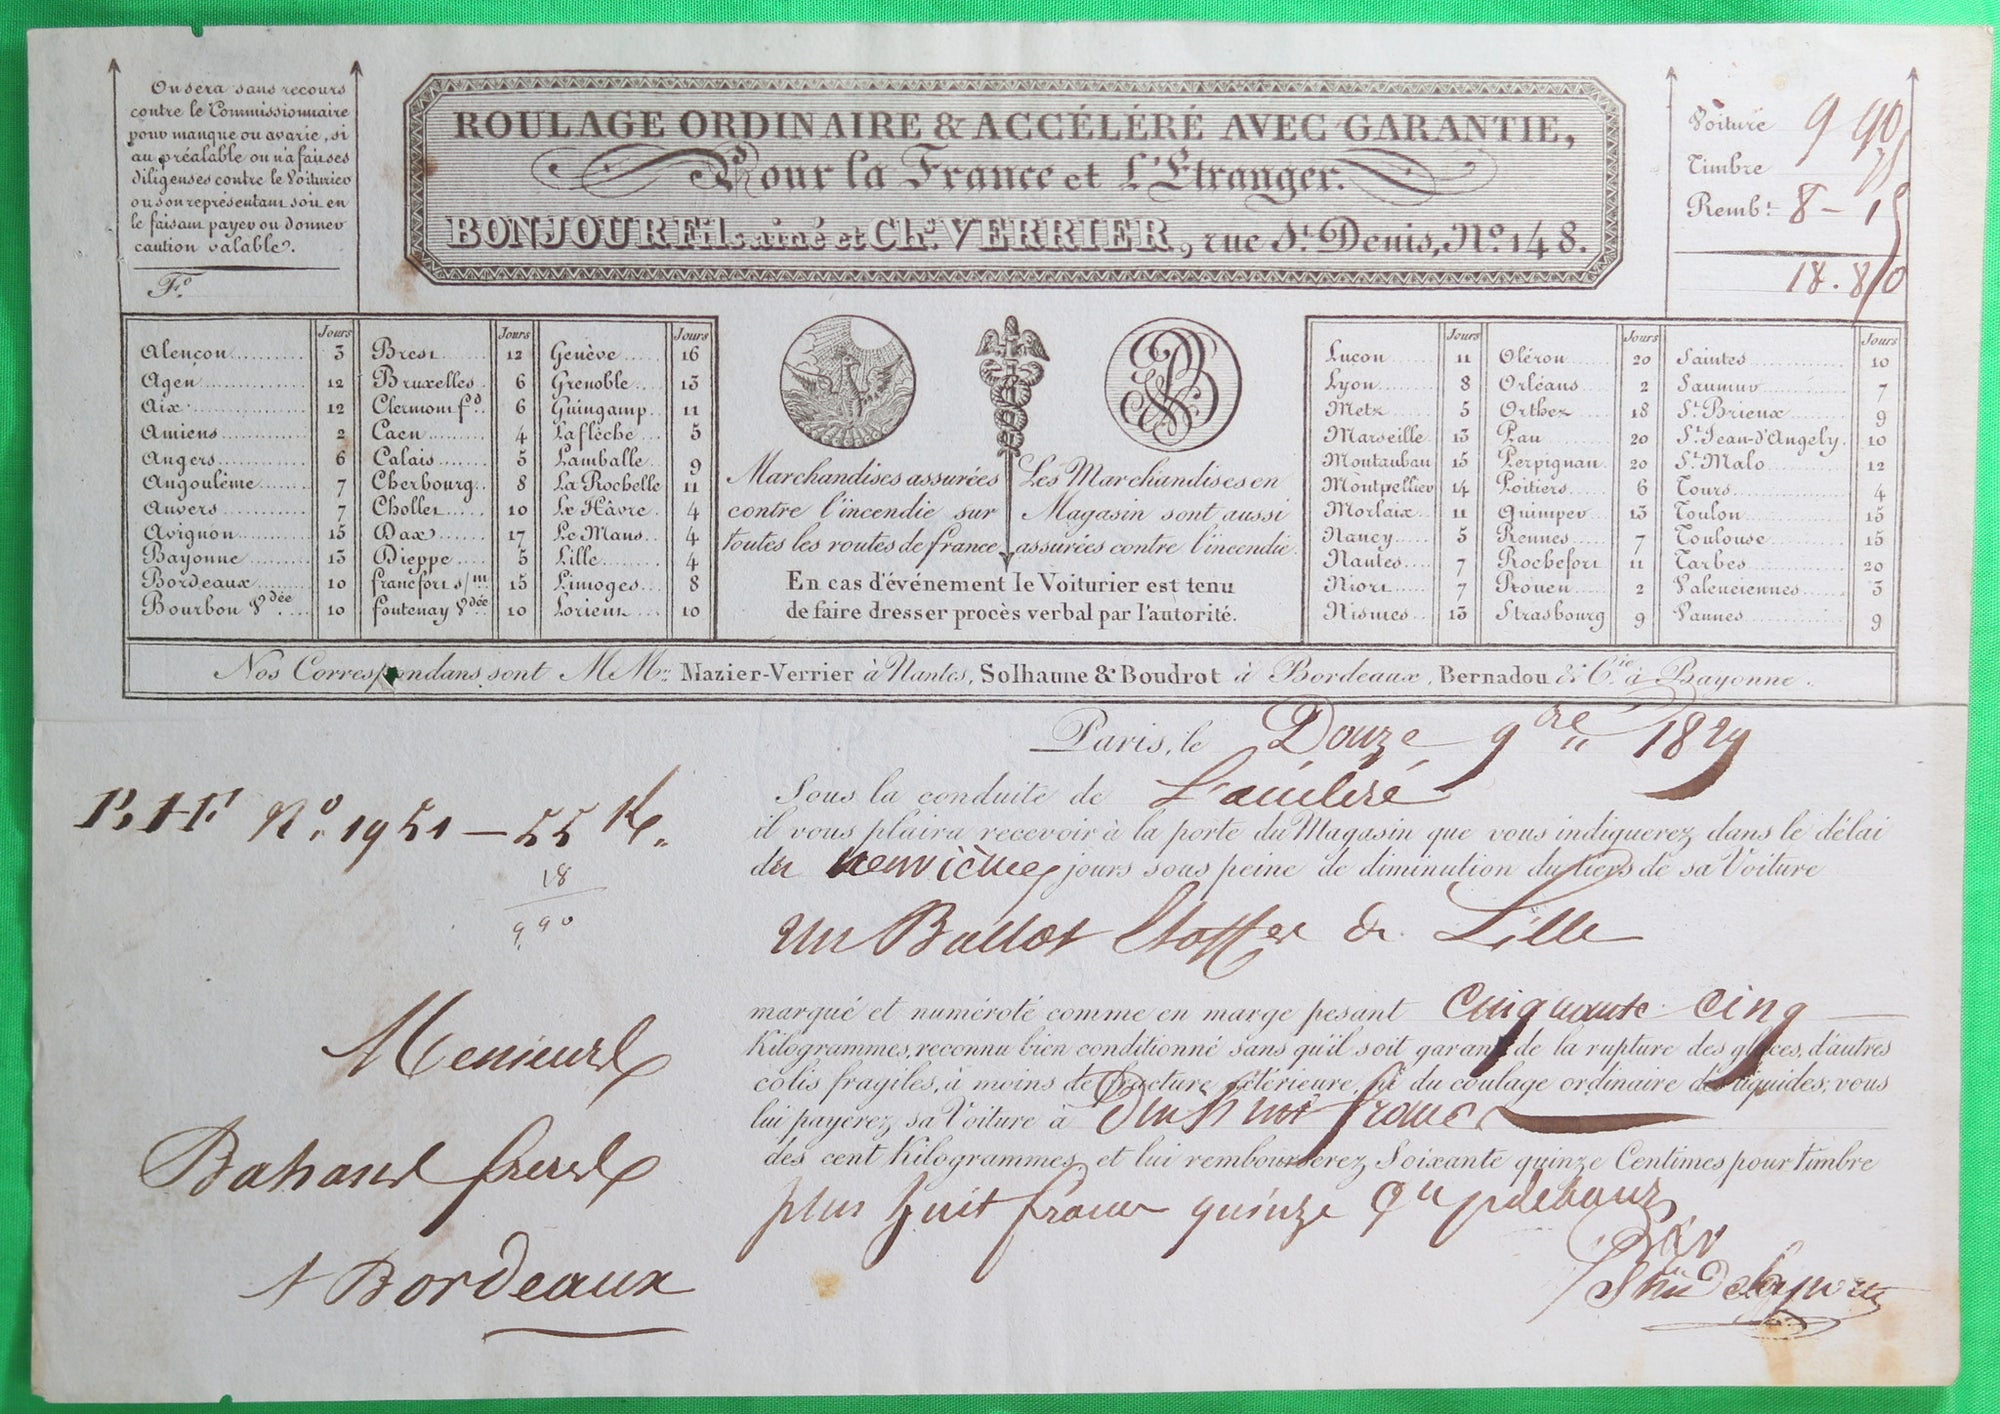 On sera sans recours
contre le Commissionnaire
pour manque ou avarie, si
au préalable on n'a fait ses
diligenses contre le Voiturier
ou son représentant soit en
le faisant payer ou donner
caution valable.
F.º
ROULAGE ORDINAIRE & ACCÉLÉRÉ AVEC GARANTIE,
Pour la France et L'Etranger.
BONJOUR Fils ainé et Ch.ˢ VERRIER, rue S.ᵗ Denis, N.º 148.
Voiture 9 90
Timbre 75
Remb.ᵗ 8 - 15
18.80
Jours
Alençon 3
Agen 12
Aix 12
Amiens 2
Angers 6
Angoulême 7
Anvers 7
Avignon 15
Bayonne 13
Bordeaux 10
Bourbon Vdée 10
Jours
Brest 12
Bruxelles 6
Clermont fd. 6
Caen 4
Calais 5
Cherbourg 8
Chollet 10
Dax 17
Dieppe 5
francfort s/m 15
fontenay Vdée 10
Jours
Genève 16
Grenoble 13
Guingamp 11
Laflèche 5
Lamballe 9
La Rochelle 11
Le Hâvre 4
Le Mans 4
Lille 4
Limoges 8
Lorient 10
Marchandises assurées
contre l'incendie sur
toutes les routes de france
Les Marchandises en
Magasin sont aussi
assurées contre l'incendie.
En cas d'événement le Voiturier est tenu
de faire dresser procès verbal par l'autorité.
Jours
Luçon 11
Lyon 8
Metz 5
Marseille 13
Montauban 15
Montpellier 14
Morlaix 11
Nancy 5
Nantes 7
Niort 7
Nismes 13
Jours
Oléron 20
Orléans 2
Orthez 18
Pau 20
Perpignan 20
Poitiers 6
Quimper 13
Rennes 7
Rochefort 11
Rouen 2
Strasbourg 9
Jours
Saintes 10
Saumur 7
St. Brieux 9
St. Jean-d'Angely 10
St. Malo 12
Tours 4
Toulon 15
Toulouse 15
Tarbes 20
Valenciennes 3
Vannes 9
Nos Correspondans sont MM.rs Mazier-Verrier à Nantes, Solhaune & Boudrot à Bordeaux, Bernadou & C.ie à Bayonne.
Paris, le Douze 9bre 1829
Sous la conduite de L'accéléré
il vous plaira recevoir à la porte du Magasin que vous indiquerez dans le délai
de neuvième jours sous peine de diminution du tiers de sa Voiture
N.º 1951 — 55 K.
18
9,90
un Ballot Etoffes de Lille
marqué et numéroté comme en marge pesant cinquante cinq
Kilogrammes, reconnu bien conditionné sans qu'il soit garant de la rupture des glaces, d'autres
colis fragiles, à moins de fracture extérieure, ni du coulage ordinaire des liquides; vous
lui payerez sa Voiture à Dix huit francs
des cent Kilogrammes et lui rembourserez Soixante quinze Centimes pour timbre
plus huit francs quinze Cme
Messieurs
frères
A Bordeaux